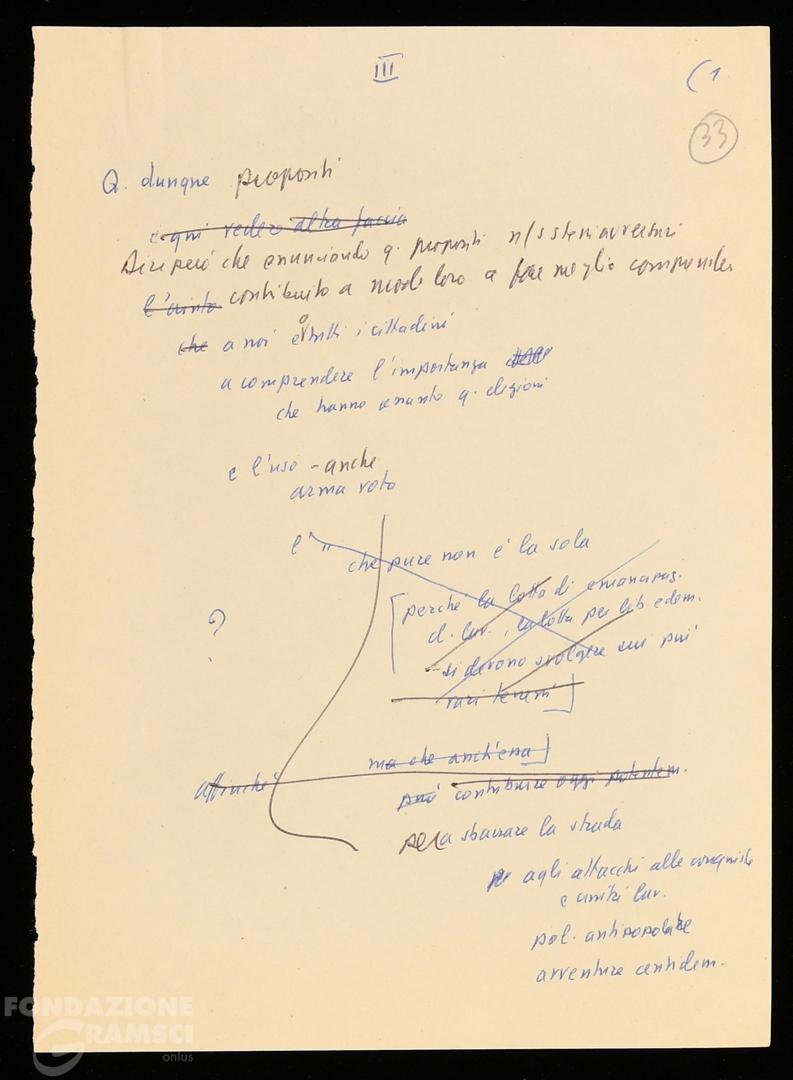 III
(1
33
Q. dunque propositi
ogni vedere altra faccia
Dire però che enunciando q. propositi n/s
l'aiuto contribuito a modo loro a fare meglio comprendere
che a noi e o tutti i cittadini
a comprendere l'importanza
che hanno q. elezioni
e l'uso - anche
arma voto
l' "
che pure non è la sola
[perché la lotta di emancipaz.
d. lav., la lotta per lib. e dem.
si devono svolgere sui più
vari terreni]
?
ma che anch'essa]
affinché
può contribuire oggi potentem.
per a sbarrare la strada
agli attacchi alle conquiste
e unità lav.
pol. antipopolare
avventure antidem.
FONDAZIONE
GRAMSCI
onlus